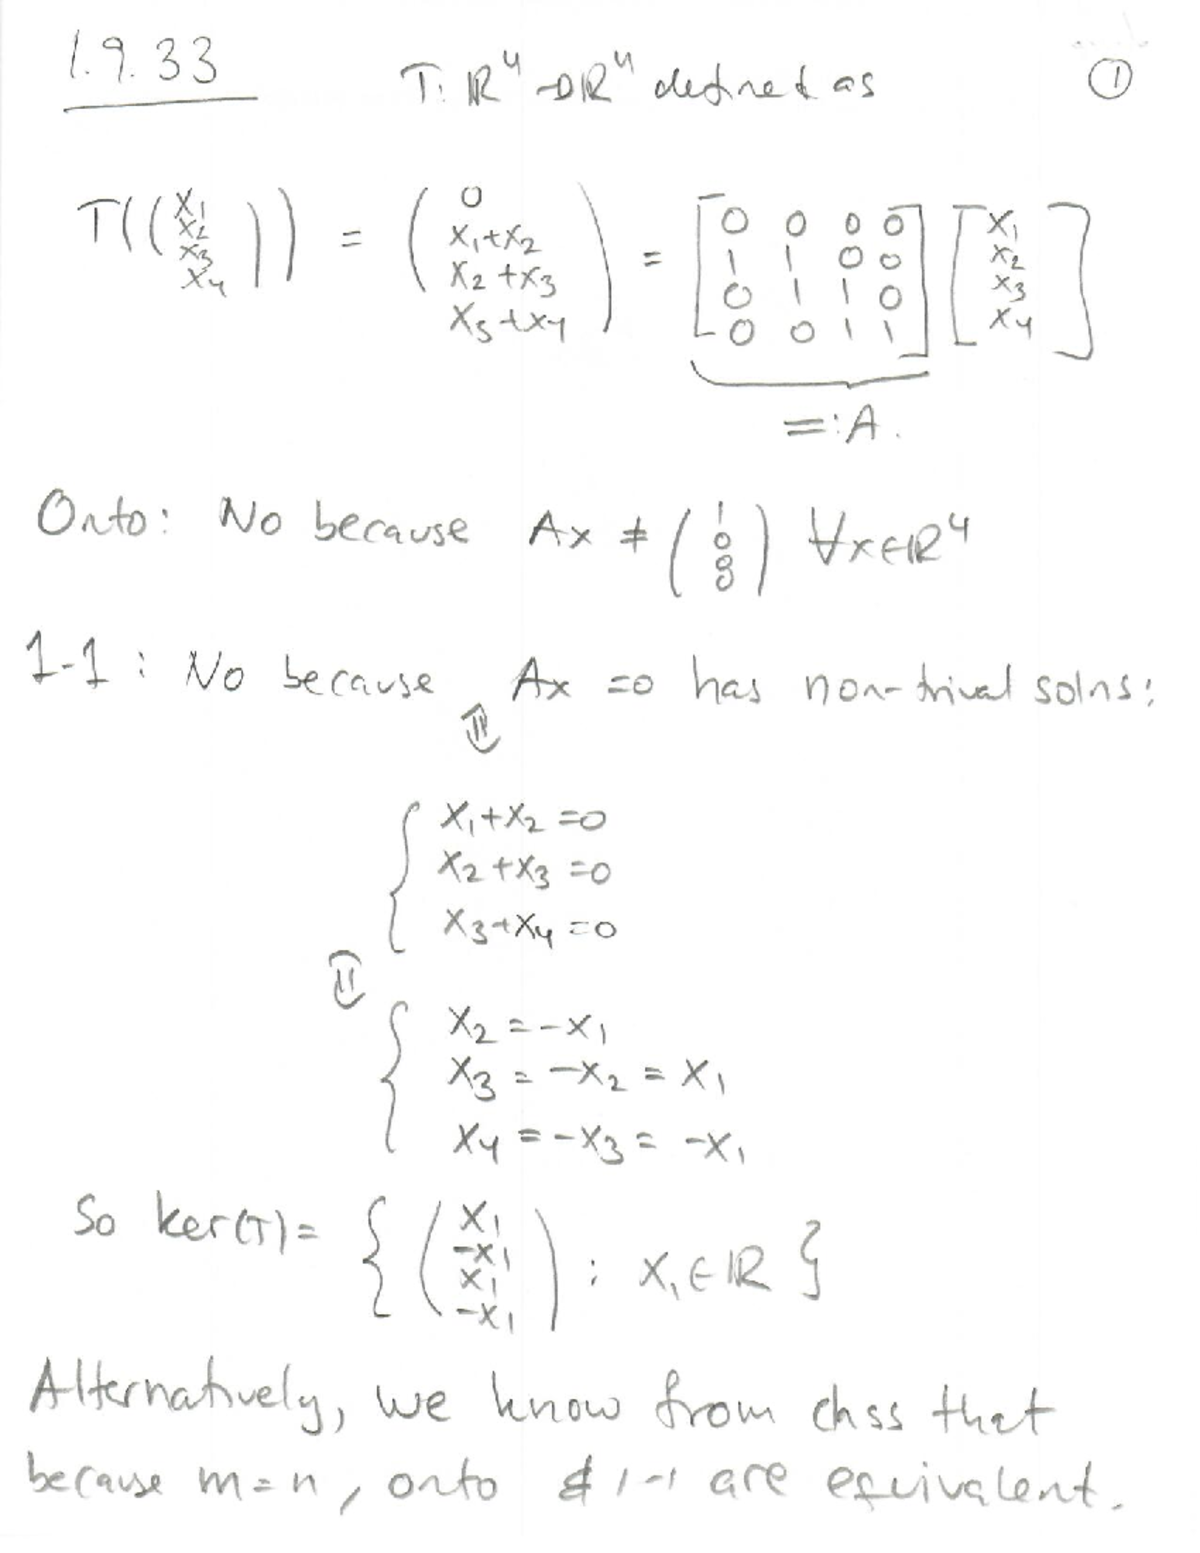 1.9.33 T: ℝ⁴→ℝ⁴ defined as ①
T((x₁ x₂ x₃ x₄)) = (0 x₁+x₂ x₂+x₃ x₃+x₄) = [0 0 0 0 1 1 0 0 0 1 1 0 0 0 1 1] [x₁ x₂ x₃ x₄]
=:A.
Onto: No because Ax ≠ (1 0 0 0) ∀x∈ℝ⁴
1-1: No because Ax =0 has non-trival solns:
⇕
{ x₁+x₂ =0
x₂+x₃ =0
x₃+x₄ =0
⇕
{ x₂ = -x₁
x₃ = -x₂ = x₁
x₄ = -x₃ = -x₁
So ker(T) = { (x₁ -x₁ x₁ -x₁) : x₁∈ℝ }
Alternatively, we know from class that
because m=n, onto & 1-1 are equivalent.